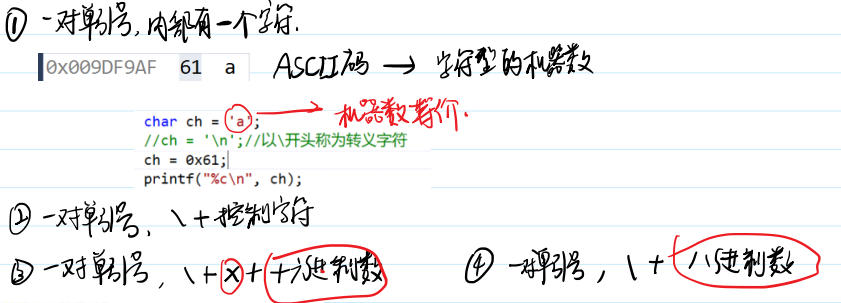 ① 一对单引号,内部有一个字符.
0x009DF9AF 61 a ASCII码 → 字符型的机器数
char ch = 'a'; → 机器数等价.
//ch = '\n';//以\开头称为转义字符
ch = 0x61;
printf("%c\n", ch);
② 一对单引号, \+控制字符
③ 一对单引号, \+x+十六进制数 ④ 一对单引号, \+八进制数